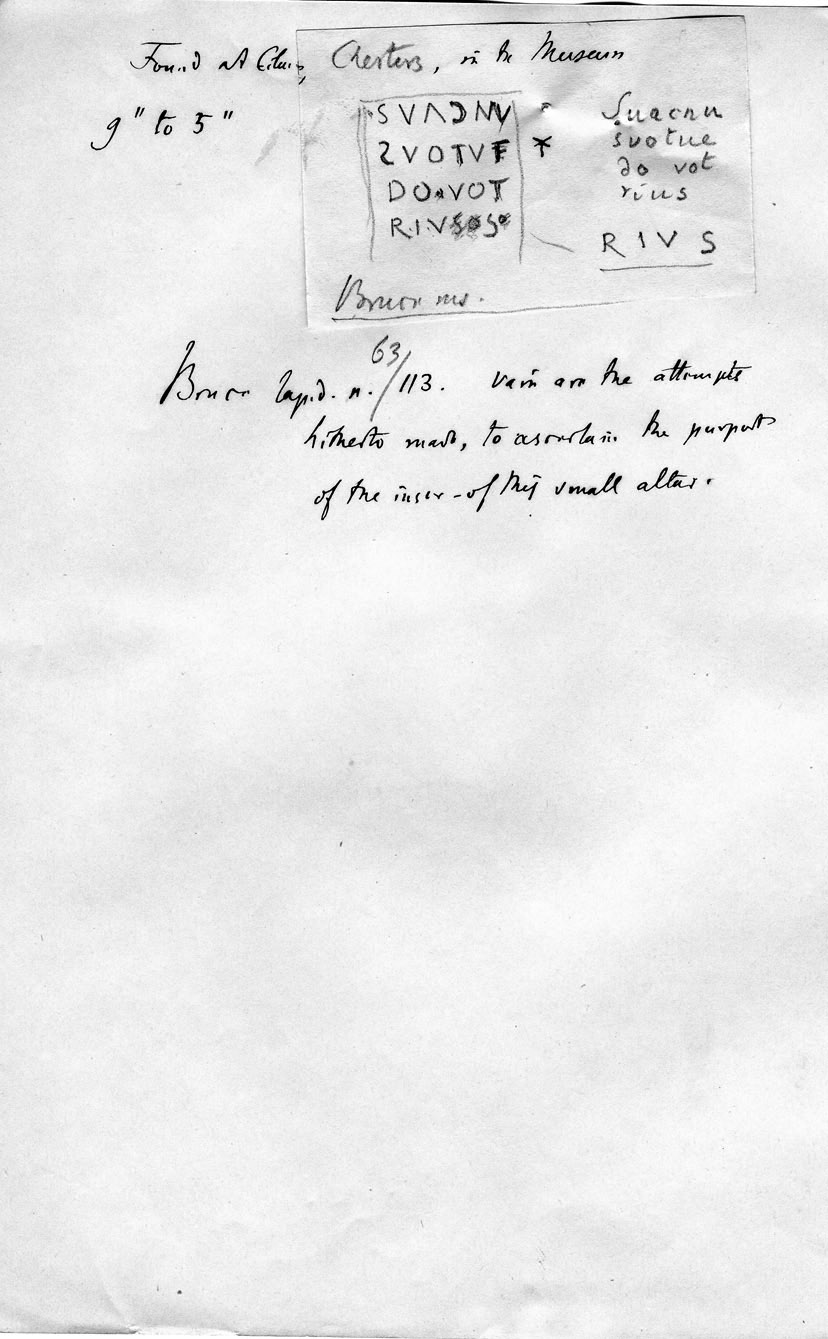 Found at Cilur, Chesters, in the Museum
9" to 5"
SVADNV
SVOTVF *
DO VOT
RIVSOS
Suacnu
svotue
do vot
rius
RIVS
Bruce ms.
Bruce lapid. n. 63/113. vain are the attempts
hitherto made, to ascertain the purport
of the inscr - of this small altar.